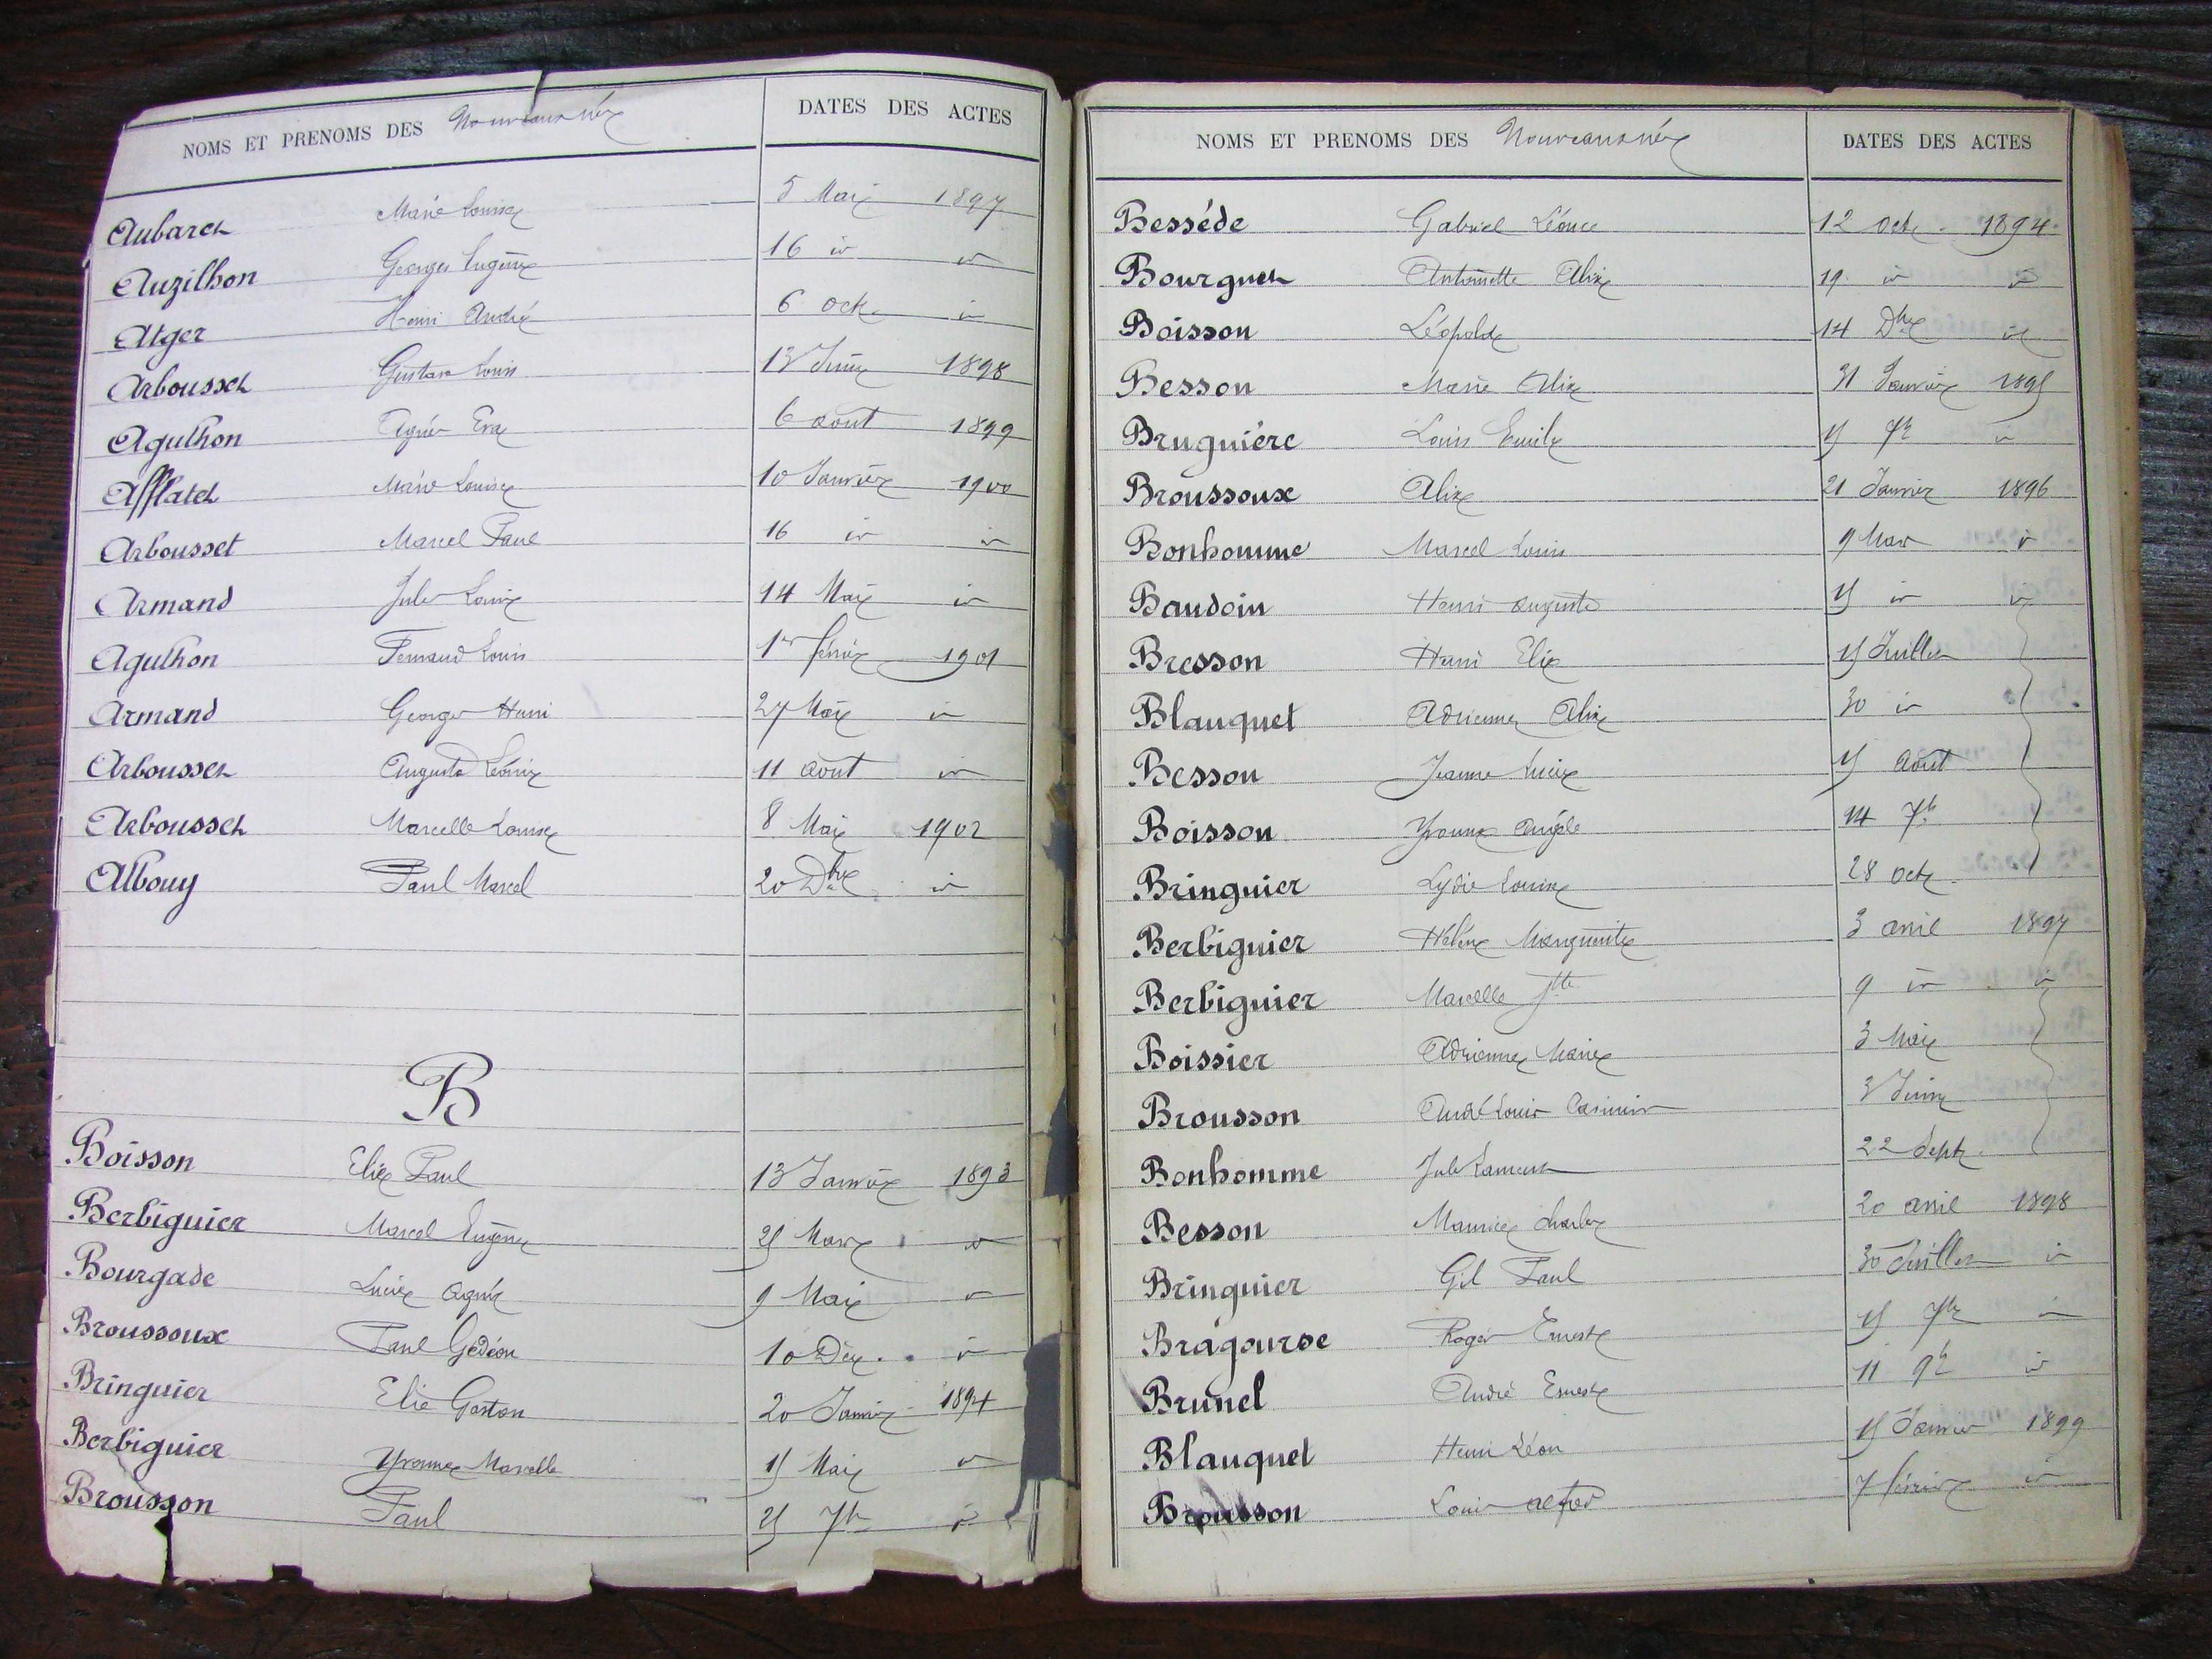 NOMS ET PRENOMS DES Nouveaux nés DATES DES ACTES
Aubaret Marie Louise 5 Mai 1897
Auzilhon Georges Eugène 16 id id
Atger Henri André 6 Oct. id
Arbousset Gustave Louis 13 Juin 1898
Agulhon Agnès Eva 6 août 1899
Afflatet Marie Louise 10 Janvier 1900
Arbousset Marcel Paul 16 id id
Armand Jules Louis 14 Mai id
Agulhon Fernand Louis 1er février 1901
Armand Georges Henri 27 Mai id
Arbousset Augusta 11 août id
Arbousset Marcelle Louise 8 Mai 1902
Albouy Paul Marcel 20 Dbre id
B
Boisson Elie Paul 13 Janvier 1893
Berbiguier Marcel Eugène 25 Mars id
Bourgade Lucie Agnès 9 Mai id
Broussoux Paul Gédéon 10 Déc. id
Bringuier Elie Gaston 20 Janvier 1894
Berbiguier Yvonne Marcelle 15 Mai id
Brousson Paul 25 7bre id
NOMS ET PRENOMS DES Nouveaux nés DATES DES ACTES
Besséde Gabriel Léonce 12 Oct. 1894
Bourguet Antoinette Alix 19 id id
Boisson Léopold 14 Dbre id
Besson Marie Alix 31 Janvier 1895
Bruguiére Louis Emile 15 7bre id
Broussoux Alix 21 Janvier 1896
Bonhomme Marcel Louis 9 Mars id
Baudoin Henri Auguste 15 id id
Bresson Henri Elie 15 Juillet
Blauquet Adrienne Alix 30 id
Besson Jeanne Lucie 15 Août
Boisson Yvonne 14 7bre
Bringuier Lydie Louise 28 Oct.
Berbiguier Hélène Marguerite 3 avril 1897
Berbiguier Marcelle 9 id id
Boissier Adrienne Marie 3 Mai
Brousson André Louis Casimir 3 Juin
Bonhomme Jules Laurent 22 Sept.
Besson Maurice Charles 20 avril 1898
Bringuier Gil Paul 30 Juillet id
Bragouse Roger Ernest 15 7bre id
Brunel André Ernest 11 9bre id
Blauquet Henri Léon 15 Janvier 1899
Brousson Louis Alfred 7 février id